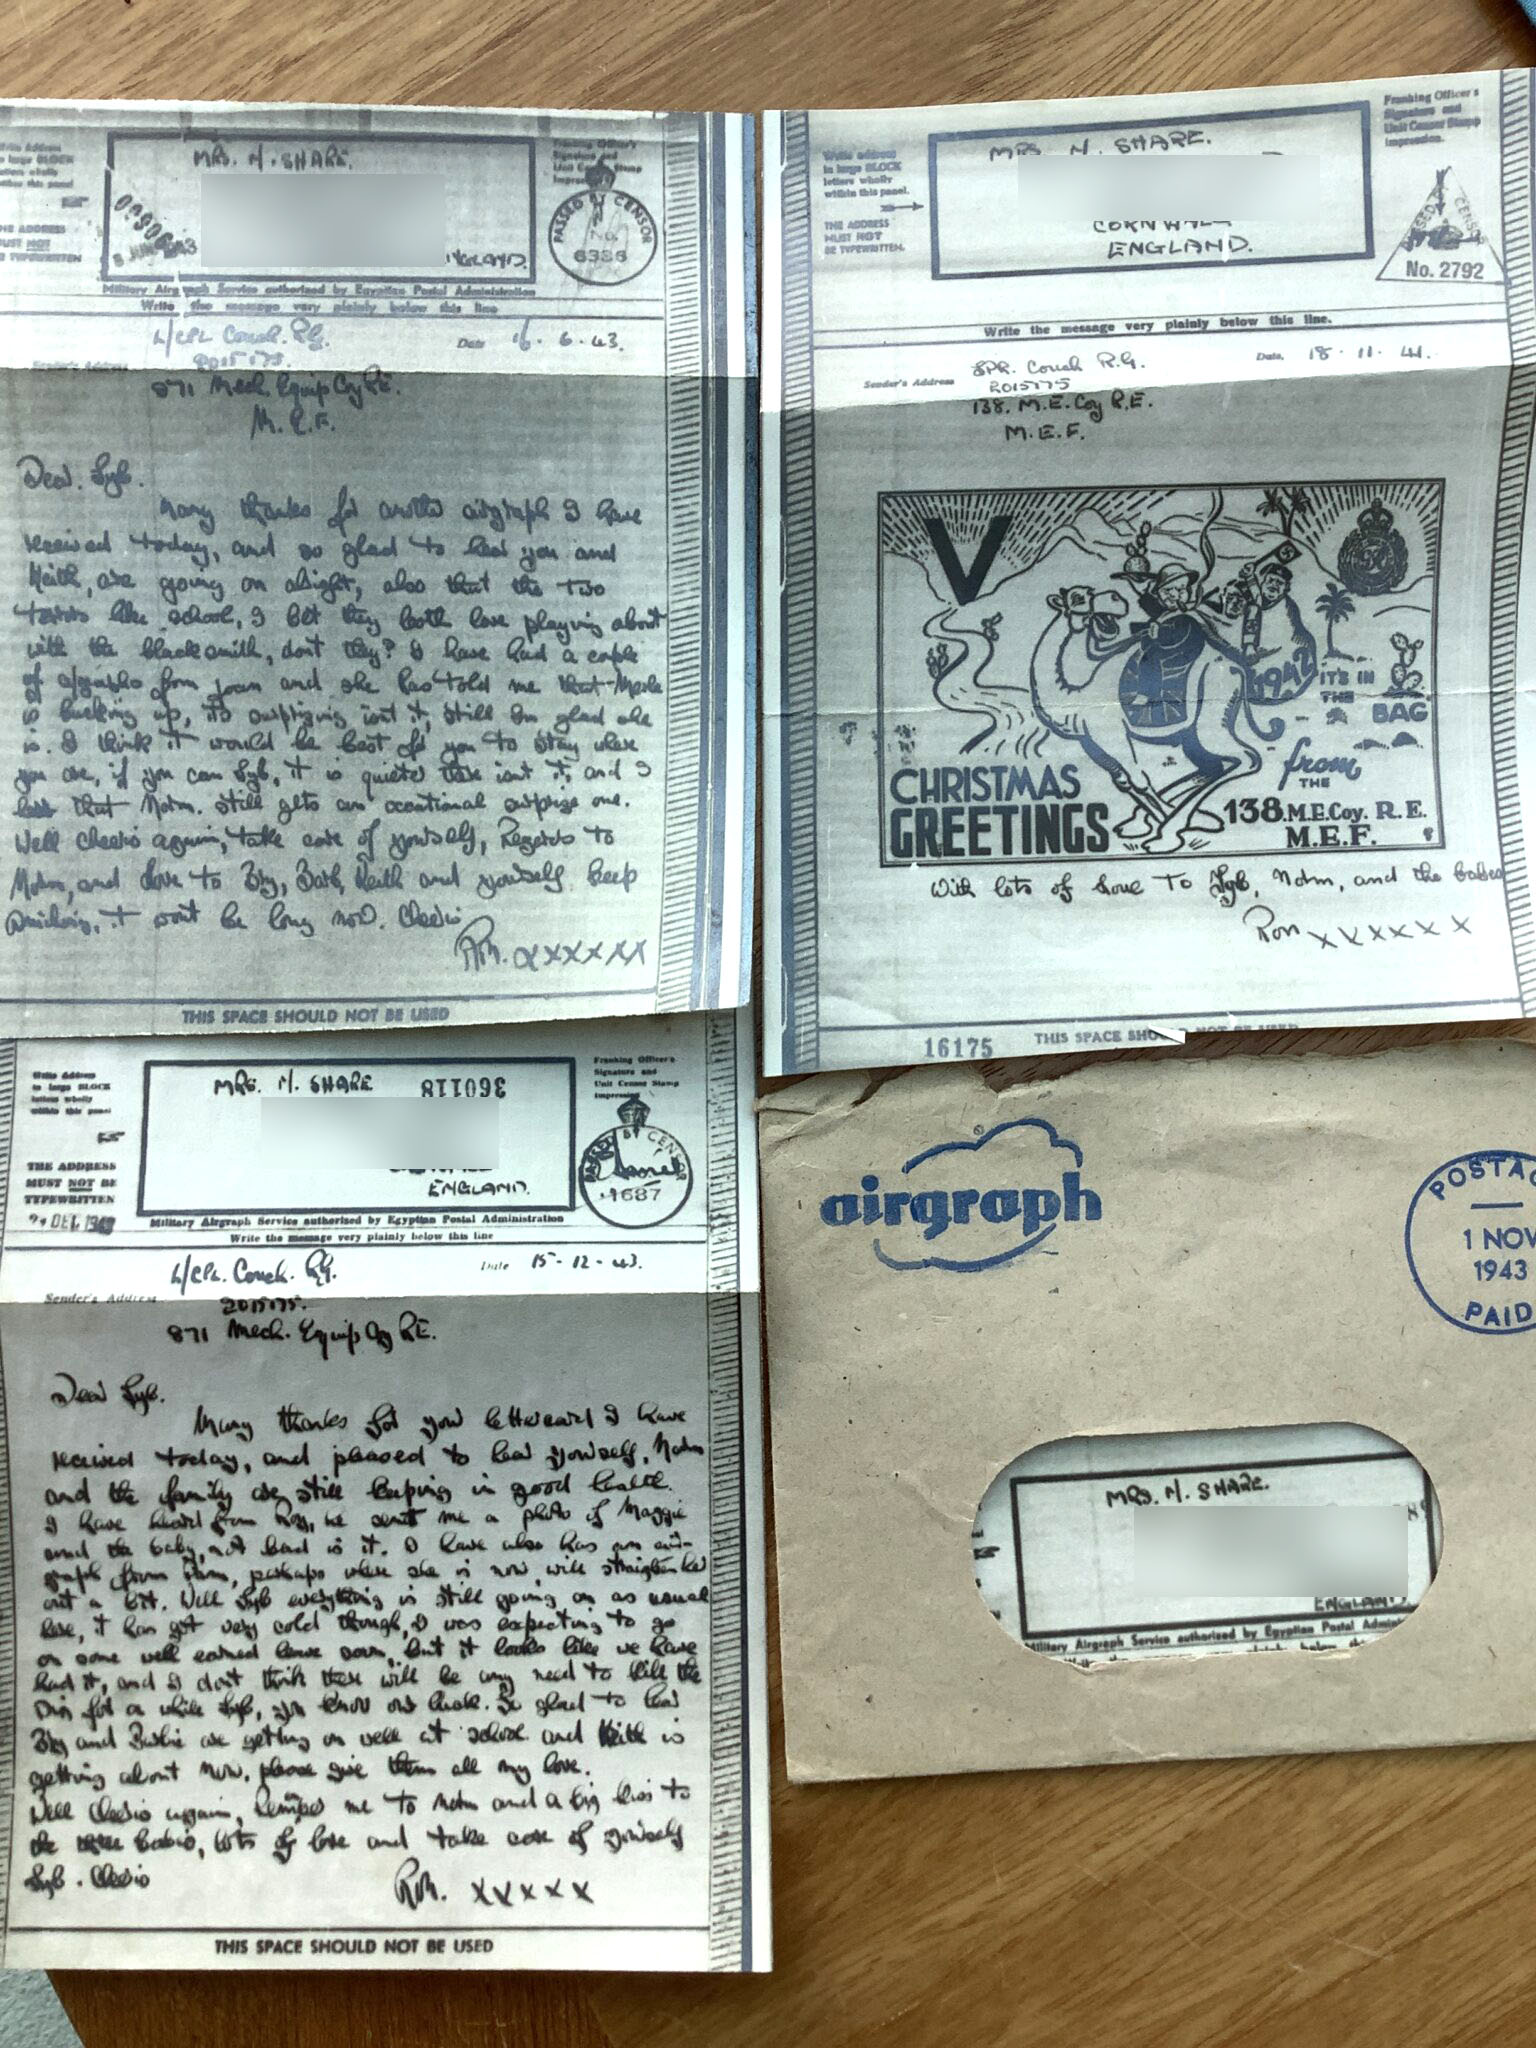 Write Address
in large BLOCK
letters wholly
within this panel
THE ADDRESS
MUST NOT
BE TYPEWRITTEN
MRS. N. SHARE.
ENGLAND.
Franking Officer's
Signature and
Unit Censor Stamp
Impression
PASSED BY CENSOR
No.
6336
Military Airgraph Service authorized by Egyptian Postal Administration
Write the message very plainly below this line
L/CPL Couch. R.G.
Date 16. 6. 43.
Sender's Address
2015175.
871 Mech. Equip Coy R.E.
M.E.F.
Dear Syb.
Many thanks for another airgraph I have
received today, and so glad to hear you and
Keith, are going on alright, also that the two
terrors like school, I bet they both love playing about
with the blacksmith, dont they? I have had a couple
of airgraphs from Joan and she has told me that Merle
is bucking up, its surprising isnt it, still Im glad she
is. I think it would be best for you to stay where
you are, if you can Syb, it is quieter there isnt it, and I
bet that Norm. still gets an occational surprise one.
Well cheerio again, take care of yourself, Regards to
Norm, and love to Bry, Barb, Keith and yourself keep
smiling, it wont be long now. Cheerio
Ron. xxxxxx
THIS SPACE SHOULD NOT BE USED
Write address
in large BLOCK
letters wholly
within this panel.
THE ADDRESS
MUST NOT
BE TYPEWRITTEN.
MRS. N. SHARE.
CORNWALL
ENGLAND.
Franking Officer's
Signature and
Unit Censor Stamp
Impression.
PASSED BY CENSOR
No. 2792
Write the message very plainly below this line.
Sender's Address
SPR. Couch R.G.
Date, 18. 11. 41.
2015175
138. M.E. Coy R.E.
M.E.F.
V
1942
IT'S IN
THE
BAG
CHRISTMAS
GREETINGS
from
THE
138.M.E.Coy. R.E.
M.E.F.
With lots of love to Syb, Norm, and the babes
Ron xxxxxx
16175
THIS SPACE SHOULD NOT BE USED
Write Address
in large BLOCK
letters wholly
within this panel
THE ADDRESS
MUST NOT BE
TYPEWRITTEN
DEC. 1943
MRS. N. SHARE
360118
ENGLAND.
Franking Officer's
Signature and
Unit Censor Stamp
Impression
PASSED BY CENSOR
1687
Military Airgraph Service authorized by Egyptian Postal Administration
Write the message very plainly below this line
L/CPL. Couch. R.G.
Date 15-12-43.
Sender's Address
2015175.
871 Mech. Equip Coy R.E.
Dear Syb.
Many thanks for your lettercard I have
received today, and pleased to hear yourself, Norm
and the family are still keeping in good health.
I have heard from Roy, he sent me a photo of Maggie
and the baby, not bad is it. I have also has an air-
graph from, perhaps where she is now will straighten her
out a bit. Well Syb everything is still going on as usual
here, it has got very cold though, I was expecting to go
on some well earned leave soon, but it looks like we have
had it, and I dont think there will be any need to kill the
for a while Syb, you know our luck. So glad to hear
Bry and Barbie are getting on well at school and Keith is
getting about now, please give them all my love.
Well Cheerio again, Remember me to Norm and a big kiss to
the three babies, lots of love and take care of yourself
Syb. Cheerio
Ron. xxxxx
THIS SPACE SHOULD NOT BE USED
airgraph
POSTAG
1 NOV
1943
PAID
MRS. N. SHARE.
ENGLAND.
Military Airgraph Service authorized by Egyptian Postal Administ